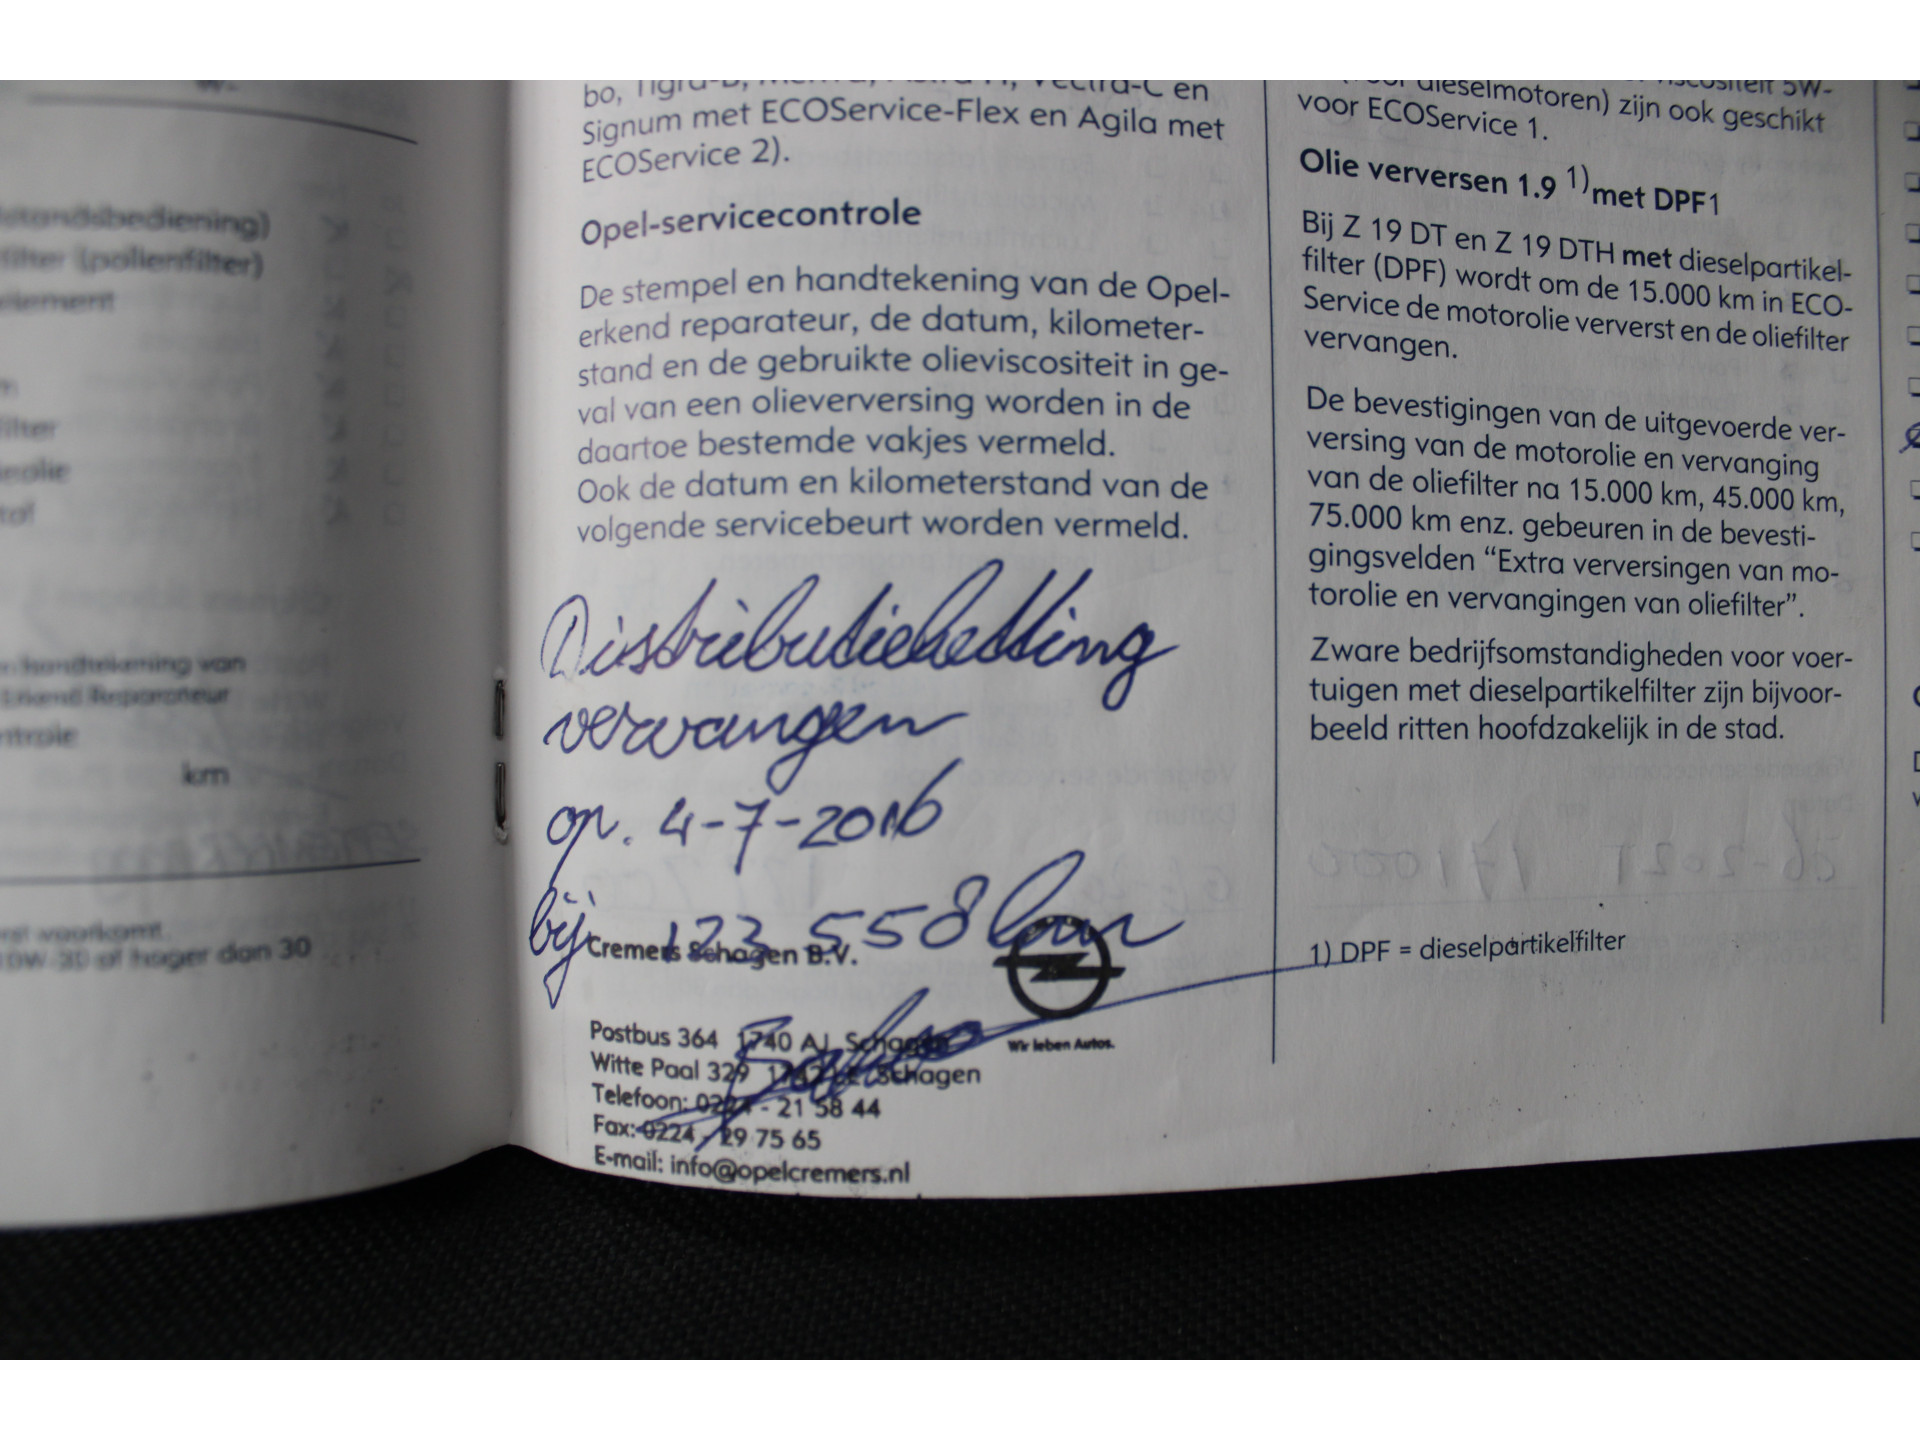 standsbediening)
filter (pollenfilter)
element
filter
handtekening van
Erkend Reparateur
km
of hoger dan 30
bo, Tigra-B, Meriva, Astra-H, Vectra-C en
Signum met ECOService-Flex en Agila met
ECOService 2).
Opel-servicecontrole
De stempel en handtekening van de Opel-
erkend reparateur, de datum, kilometer-
stand en de gebruikte olieviscositeit in ge-
val van een olieverversing worden in de
daartoe bestemde vakjes vermeld.
Ook de datum en kilometerstand van de
volgende servicebeurt worden vermeld.
Distributieketting
vervangen
op. 4-7-2016
bij 123 558 km
Cremers Schagen B.V.
Postbus 364 1740 AJ Schagen
Witte Paal 329 1742 LE Schagen
Telefoon: 0224 - 21 58 44
Fax: 0224 - 29 75 65
E-mail: info@opelcremers.nl
Wir leben Autos.
dieselmotoren) zijn ook geschikt
voor ECOService 1.
Olie verversen 1.9 1) met DPF1
Bij Z 19 DT en Z 19 DTH met dieselpartikel-
filter (DPF) wordt om de 15.000 km in ECO-
Service de motorolie ververst en de oliefilter
vervangen.
De bevestigingen van de uitgevoerde ver-
versing van de motorolie en vervanging
van de oliefilter na 15.000 km, 45.000 km,
75.000 km enz. gebeuren in de bevesti-
gingsvelden “Extra verversingen van mo-
torolie en vervangingen van oliefilter”.
Zware bedrijfsomstandigheden voor voer-
tuigen met dieselpartikelfilter zijn bijvoor-
beeld ritten hoofdzakelijk in de stad.
1) DPF = dieselpartikelfilter